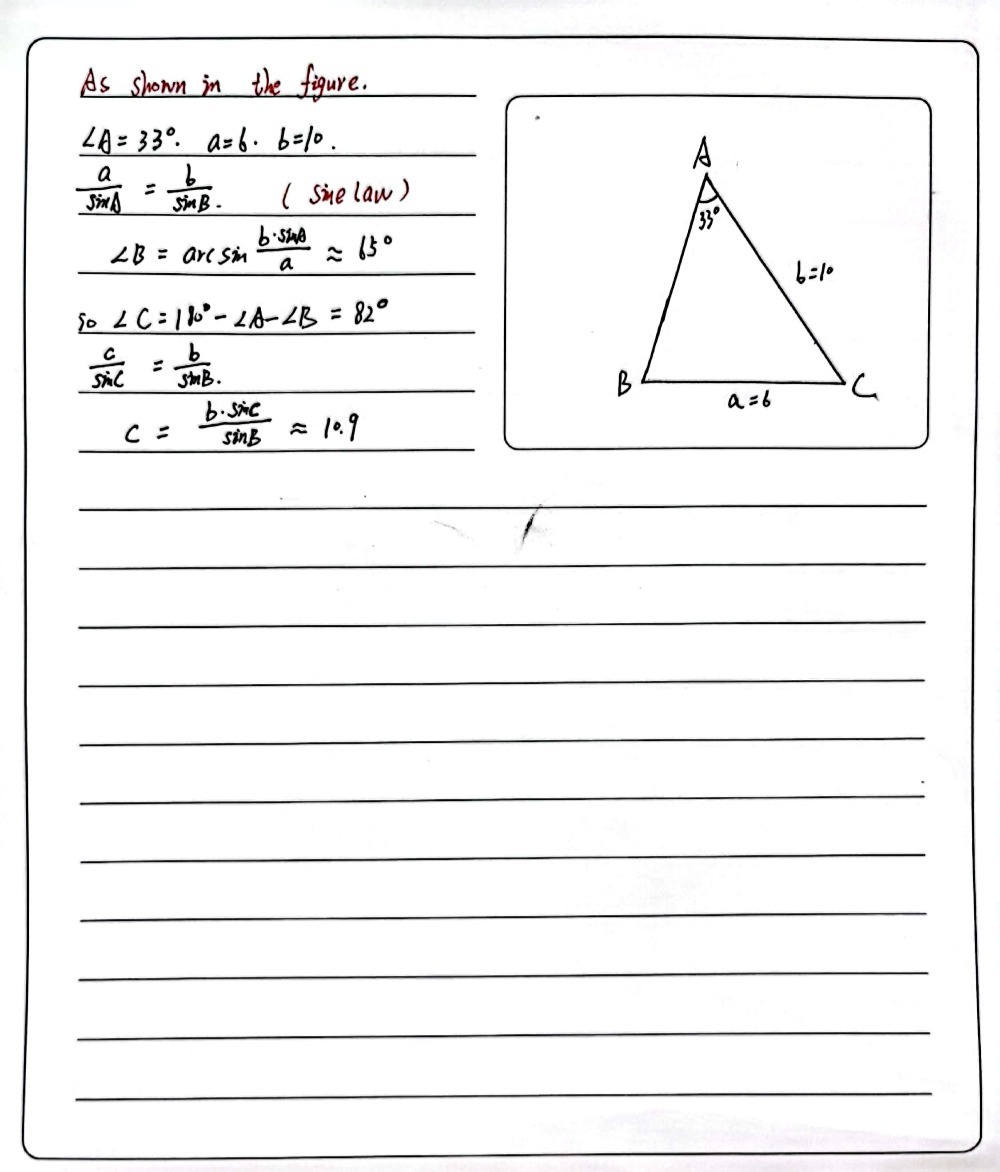 As shown in the figure.
∠A = 33°. a=6. b=10.
a/sinA = b/sinB. (sine law)
∠B = arcsin b·sinA/a ≈ 65°
so ∠C = 180° - ∠A - ∠B = 82°
c/sinC = b/sinB.
C = b·sinC/sinB ≈ 10.9
A
33°
b=10
B
C
a=6